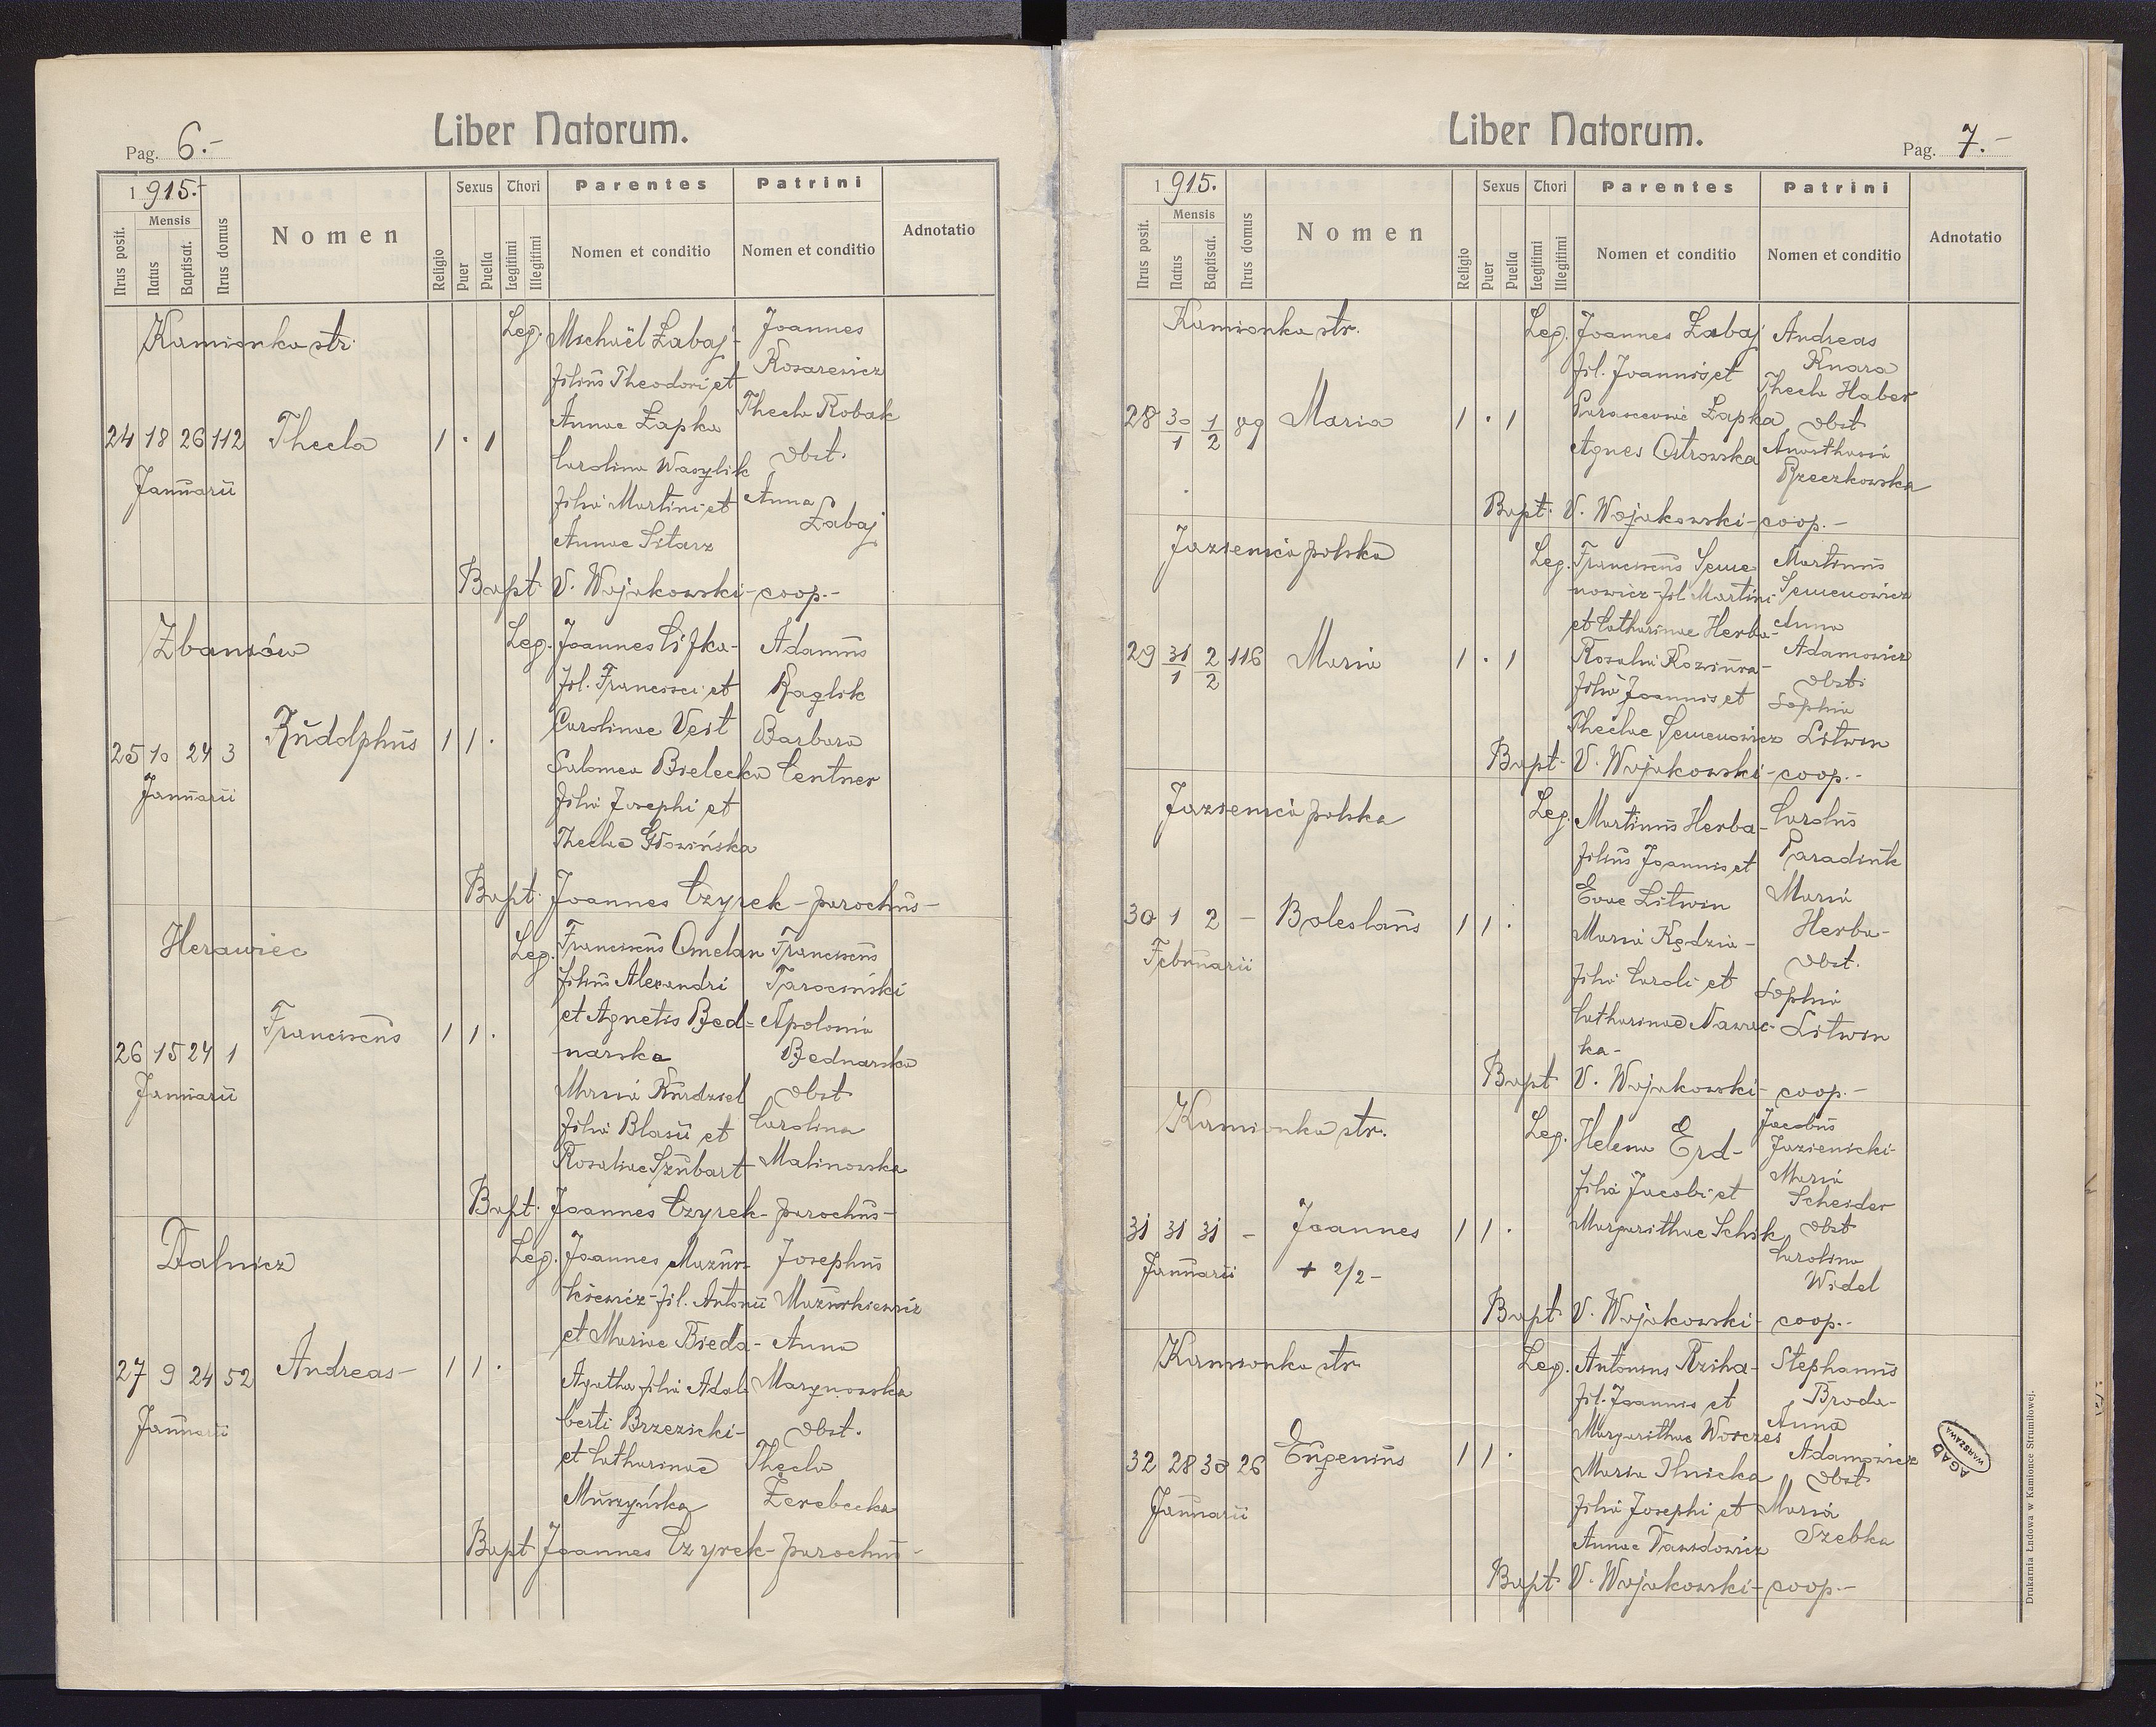 Liber Natorum.
Pag. 6.-
1915.-
Nrus posit.
Mensis
Natus
Baptisat.
Nrus domus
Nomen
Religio
Sexus
Puer
Puella
Thori
Legitimi
Illegitimi
Parentes
Nomen et conditio
Patrini
Nomen et conditio
Adnotatio
Kamionka str.
24 18 26 112 Thecla 1 . 1
Januarii
Leg. Michaël Żabaj-
filius Theodori et
Annae Łapka
Carolina Wasylik
filia Martini et
Annae Sitarz
Joannes
Kosarewicz
Thecla Robak
Obst.
Anna
Żabaj
Bapt. V. Wojakowski-coop.-
Zbaniów
25 10 24 3 Rudolphus 1 1 .
Januarii
Leg. Joannes Cifka-
fil. Francisci et
Carolinae Veit
Salomea Bielecka
filia Josephi et
Theclae Głowińska
Adamus
Raglik
Barbara
Centner
Bapt. Joannes Czyrek-parochus-
Herawiec
26 15 24 1 Franciscus 1 1 .
Januarii
Leg. Franciscus Omelan
filius Alexandri
et Agnetis Bed=
narska
Maria Kurdziel
filia Blasii et
Rosaliae Szubart
Franciscus
Tarociński
Apolonia
Bednarska
Obst
Carolina
Malinowska
Bapt. Joannes Czyrek-parochus-
Dalnicz
27 9 24 52 Andreas- 1 1 .
Januarii
Leg. Joannes Mazur-
kiewicz-fil. Antonii
et Mariae Bieda-
Agatha filia Adal-
berti Brzezicki-
et Catharinae
Muszyńska
Josephus
Mazurkiewicz
Anna
Marynowska
Obst.
Thecla
Żerebecka
Bapt Joannes Czyrek-parochus-
Liber Natorum.
Pag. 7.-
1915.
Nrus posit.
Mensis
Natus
Baptisat.
Nrus domus
Nomen
Religio
Sexus
Puer
Puella
Thori
Legitimi
Illegitimi
Parentes
Nomen et conditio
Patrini
Nomen et conditio
Adnotatio
Kamionka str.
28 30/1 1/2 89 Maria 1 . 1
Leg. Joannes Żabaj
fil. Joannis et
Parasceviae Łapka
Agnes Ostrowska
Andreas
Knara
Thecla Haber
Obst
Anasthasia
Brzeczkowska
Bapt. V. Wojakowski-coop.-
Jazienica polska
29 31/1 2/2 116 Maria 1 . 1
Leg. Franciscus Seme
nowicz-fil. Martini
et Catharinae Herba-
Rosalia
filia Joannis et
Theclae Semenowicz
Martinus
Semenowicz
Anna
Adamowicz
Obst.
Sophia
Litwin
Bapt. V. Wojakowski-coop.-
Jazienica polska
30 1 2 - Boleslaus 1 1 .
Februarii
Leg. Martinus Herba-
filius Joannis et
Evae Litwin
Maria Kędzia-
filia Caroli et
Catharinae Nawroc-
ka-
Carolus
Paradiuk
Maria
Herba-
Obst.
Sophia
Litwin
Bapt V. Wojakowski- coop.-
Kamionka str.
31 31 31 - Joannes 1 1 .
Januarii + 2/2-
Leg. Helena Erd-
filia Jacobi et
Margarithae Schik
Jacobus
Jazienicki-
Maria
Scheider
Obst
Carolina
Widel
Bapt V. Wojakowski- coop.-
Kamionka str.
32 28 30 26 Eugenius 1 1 .
Januarii
Leg. Antonius Rziha-
fil. Joannis et
Margarithae Worczes
Maria Ilnicka
filia Josephi et
Annae Dawidowicz
Stephanus
Broda-
Anna
Adamowicz
Obst
Maria
Szebka
Bapt V. Wojakowski-coop.-
AGAD
WARSZAWA
Drukarnia Łudowa w Kamionce Strumiłowej.